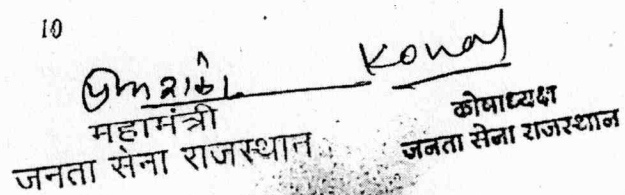 10
महामंत्री
जनता सेना राजस्थान
कोषाध्यक्ष
जनता सेना राजस्थान